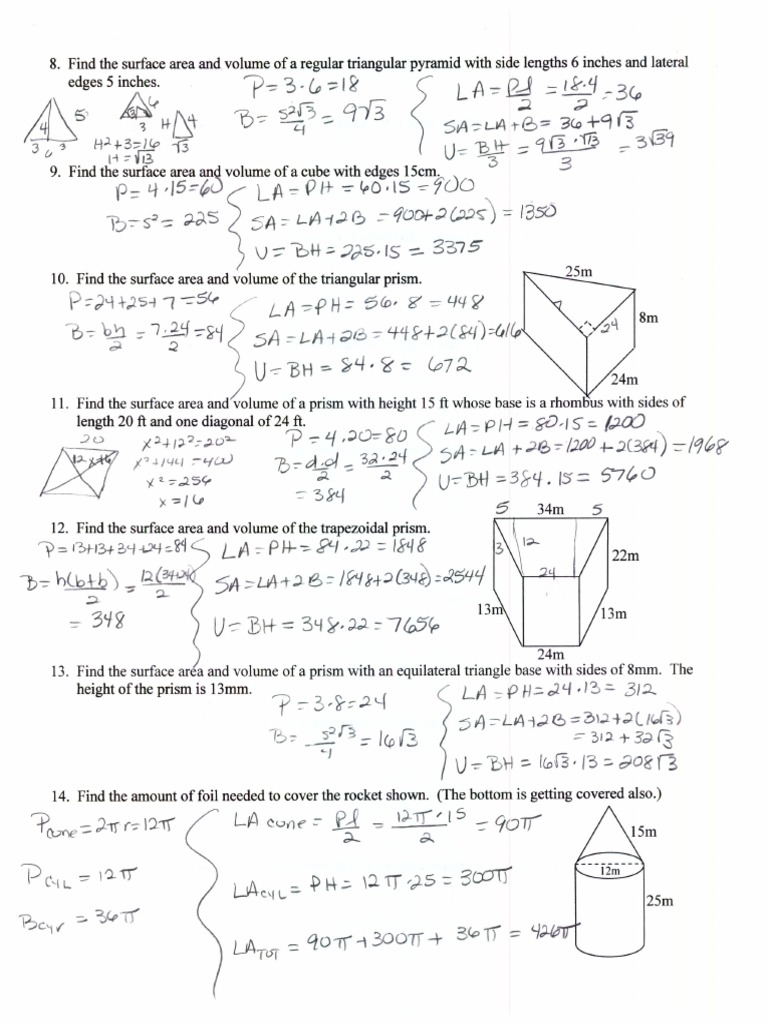 8. Find the surface area and volume of a regular triangular pyramid with side lengths 6 inches and lateral
edges 5 inches.
P = 3·6 = 18
B = s²√3/4 = 9√3
LA = Pl/2 = 18·4/2 = 36
SA = LA + B = 36 + 9√3
V = BH/3 = 9√3·√13/3 = 3√39
4 5
3 6 3
6
3
H 4
√3
H²+3=16
H = √13
9. Find the surface area and volume of a cube with edges 15cm.
P = 4·15 = 60
B = s² = 225
LA = PH = 60·15 = 900
SA = LA + 2B = 900 + 2(225) = 1350
V = BH = 225·15 = 3375
10. Find the surface area and volume of the triangular prism.
P = 24+25+7 = 56
B = bh/2 = 7·24/2 = 84
LA = PH = 56·8 = 448
SA = LA + 2B = 448 + 2(84) = 616
V = BH = 84·8 = 672
25m
7
24
8m
24m
11. Find the surface area and volume of a prism with height 15 ft whose base is a rhombus with sides of
length 20 ft and one diagonal of 24 ft.
20
12 x 16
x²+12²=20²
x²+144=400
x²=256
x=16
P = 4·20 = 80
B = d·d/2 = 32·24/2
= 384
LA = PH = 80·15 = 1200
SA = LA + 2B = 1200 + 2(384) = 1968
V = BH = 384·15 = 5760
12. Find the surface area and volume of the trapezoidal prism.
P = 13+13+34+24 = 84
B = h(b+b)/2 = 12(34+24)/2
= 348
LA = PH = 84·22 = 1848
SA = LA + 2B = 1848 + 2(348) = 2544
V = BH = 348·22 = 7656
5 34m 5
13 12
24
22m
13m
13m
24m
13. Find the surface area and volume of a prism with an equilateral triangle base with sides of 8mm. The
height of the prism is 13mm.
P = 3·8 = 24
B = s²√3/4 = 16√3
LA = PH = 24·13 = 312
SA = LA + 2B = 312 + 2(16√3)
= 312 + 32√3
V = BH = 16√3·13 = 208√3
14. Find the amount of foil needed to cover the rocket shown. (The bottom is getting covered also.)
Pcone = 2πr = 12π
PCYL = 12π
Bcyl = 36π
LA cone = Pl/2 = 12π·15/2 = 90π
LACYL = PH = 12π·25 = 300π
LATOT = 90π + 300π + 36π = 426π
15m
12m
25m